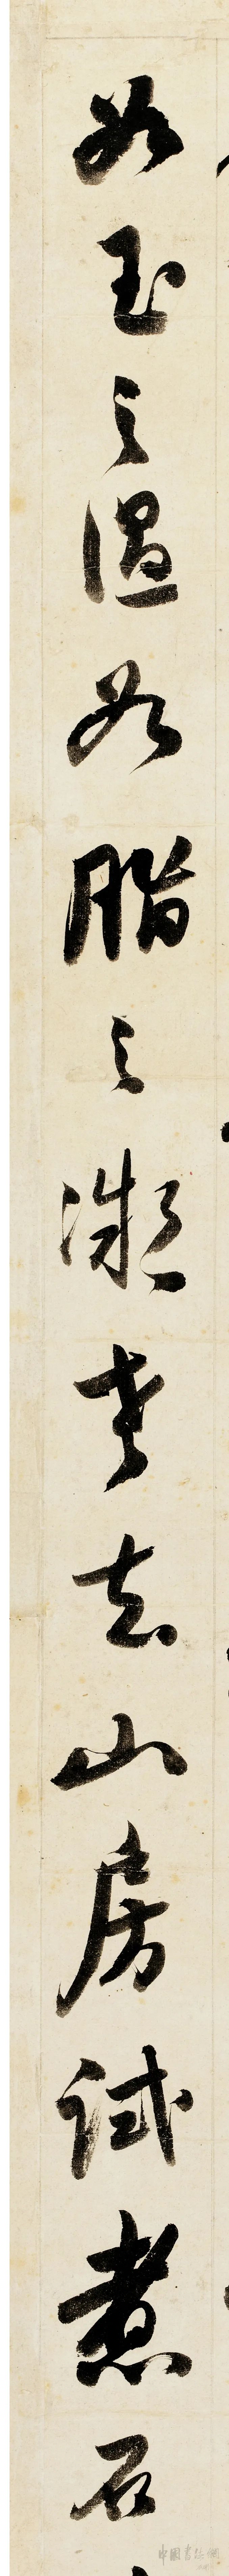 如玉之温如脂之凝老去山房試煮石
中國書法網